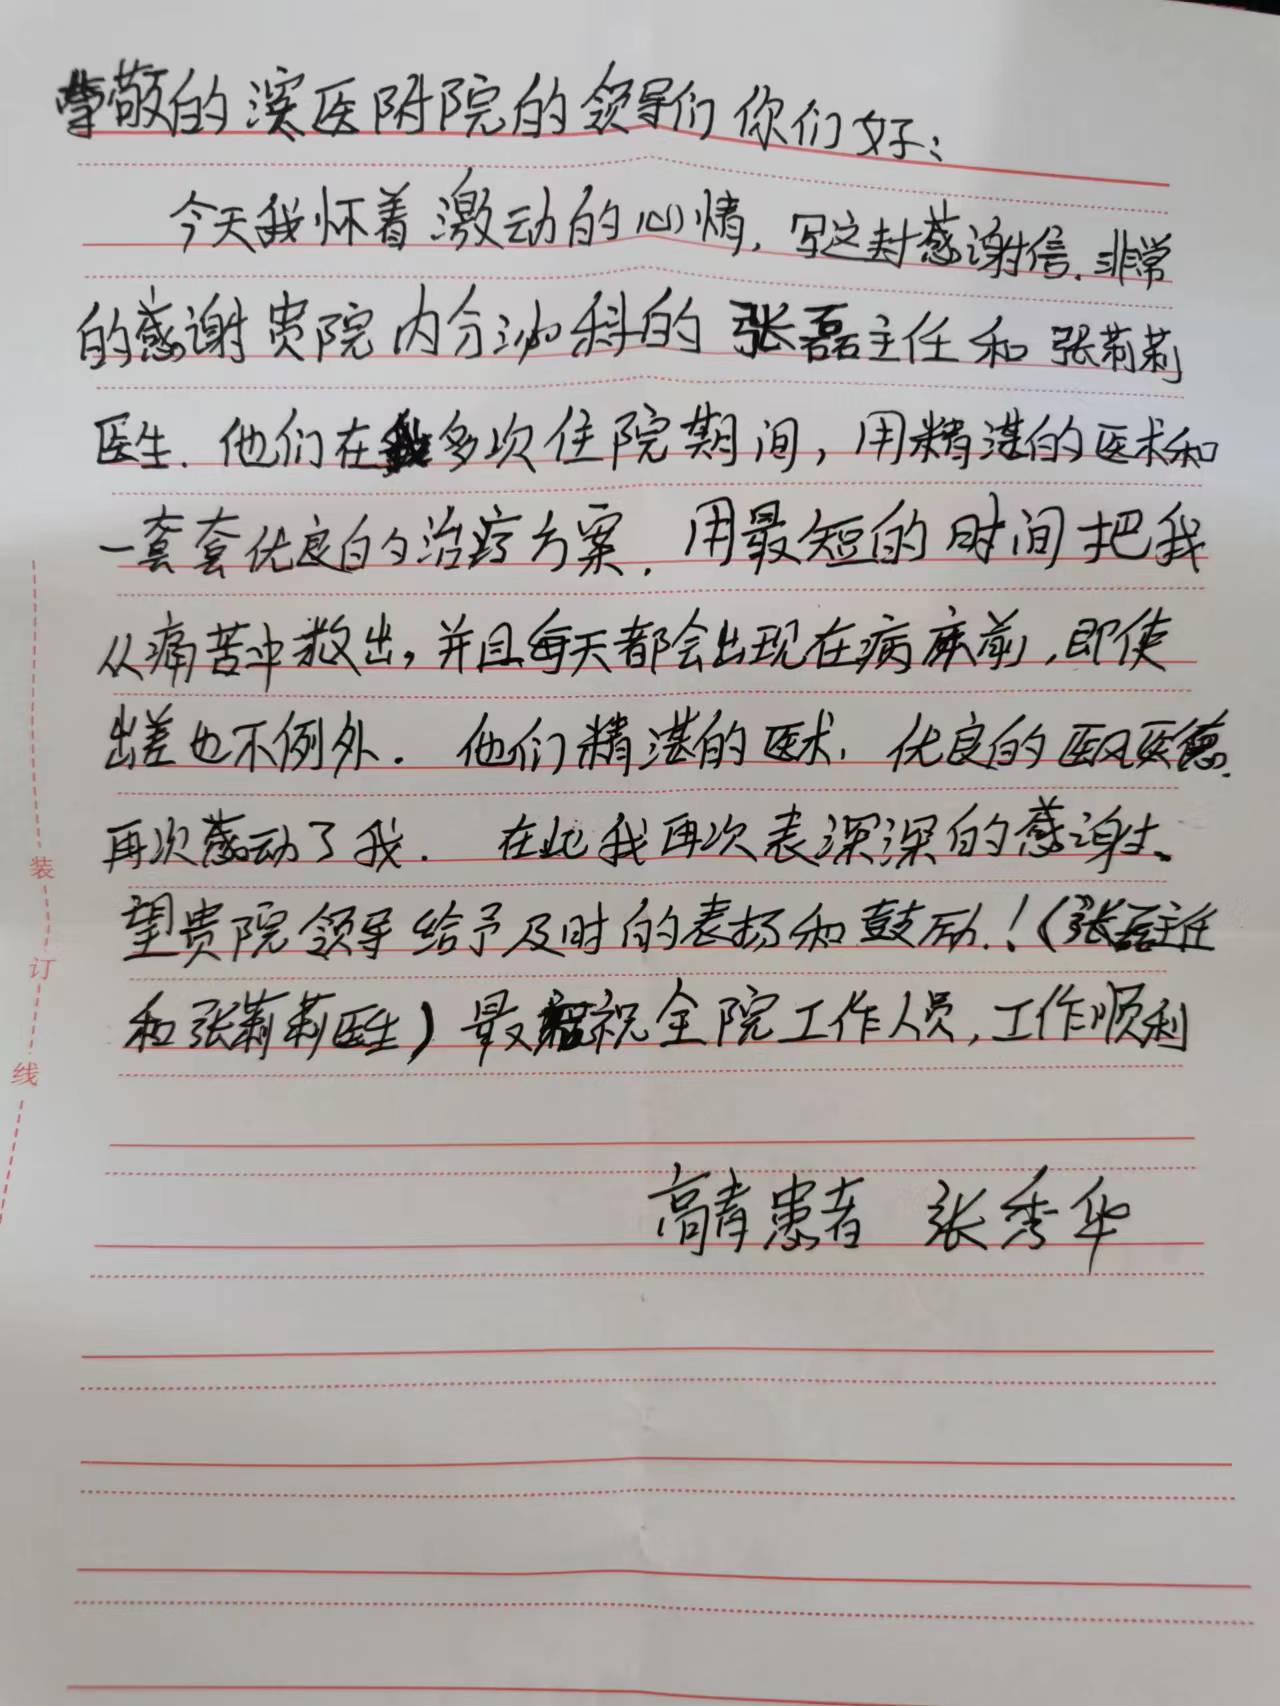 尊敬的滨医附院的领导们你们好：
今天我怀着激动的心情，写这封感谢信．非常
的感谢贵院内分泌科的张磊主任和张莉莉
医生．他们在我多次住院期间，用精湛的医术和
一套套优良的治疗方案．用最短的时间把我
从痛苦中救出，并且每天都会出现在病床前，即使
出差也不例外．他们精湛的医术，优良的医风医德
再次感动了我．在此我再次表深深的感谢、
望贵院领导给予及时的表扬和鼓励！（张磊主任
和张莉莉医生）最祝全院工作人员，工作顺利
高青患者 张秀华
装
订
线